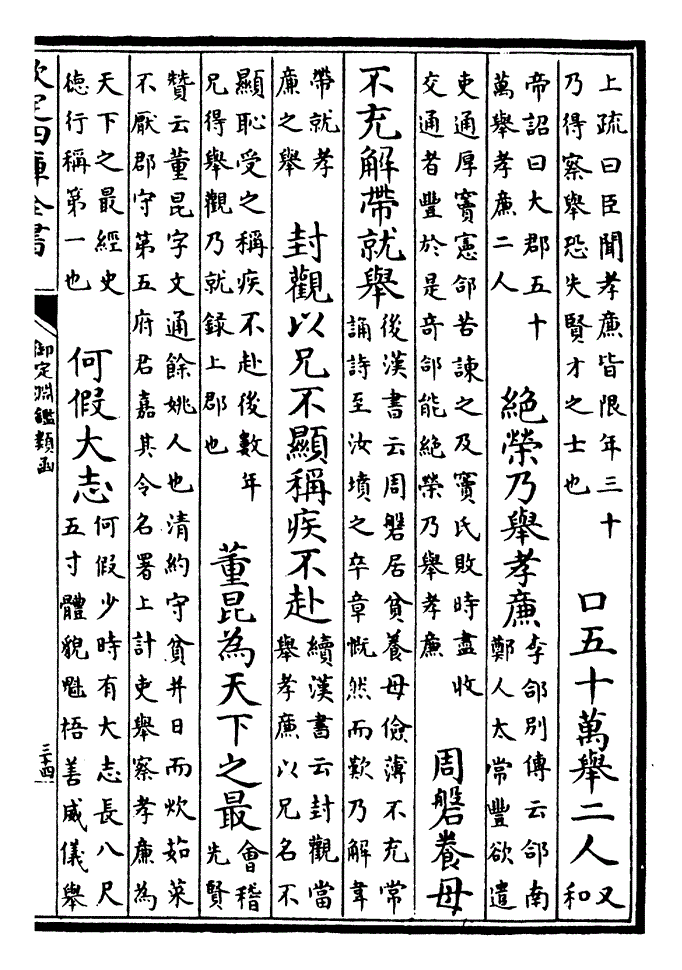 上疏曰臣聞孝廉皆限年三十
乃得察舉恐失賢才之士也
口五十萬舉二人
又
和
帝詔曰大郡五十
萬舉孝廉二人
絕榮乃舉孝廉
李郃別傳云郃南
鄭人太常豐欲遣
吏通厚竇憲郃苦諫之及竇氏敗時盡收
交通者豐於是竒郃能絕榮乃舉孝廉
周磐養母
不充解帶就舉
後漢書云周磐居貧養母儉薄不充常
誦詩至汝墳之卒章慨然而歎乃解韋
帶就孝
廉之舉
封觀以兄不顯稱疾不赴
續漢書云封觀當
舉孝廉以兄名不
顯恥受之稱疾不赴後數年
兄得舉觀乃就録上郡也
董昆為天下之最
會稽
先賢
贊云董昆字文通餘姚人也清約守貧并日而炊茹菜
不厭郡守第五府君嘉其令名署上計吏舉察孝廉為
天下之最經史
徳行稱第一也
何假大志
何假少時有大志長八尺
五寸體貌魁梧善威儀舉
欽定四庫全書
御定淵鑑類函
三十四